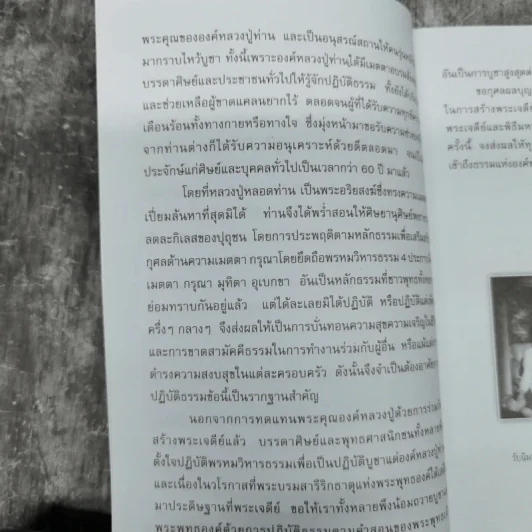 พระคุณขององค์หลวงปู่ท่าน และเป็นอนุสรณ์สถานให้คนรุ่น
มากราบไหว้บูชา ทั้งนี้เพราะองค์หลวงปู่ท่านได้มีเมตตาอบรม
บรรดาศิษย์และประชาชนทั่วไปให้รู้จักปฏิบัติธรรม ทั้งยังได้
และช่วยเหลือผู้ขาดแคลนยากไร้ ตลอดจนผู้ที่ได้รับความทุกข์
เดือนร้อนทั้งทางกายหรือทางใจ ซึ่งมุ่งหน้ามาขอรับความช่วย
จากท่านต่างก็ได้รับความอนุเคราะห์ด้วยดีตลอดมา จนเป็น
ประจักษ์แก่ศิษย์และบุคคลทั่วไปเป็นเวลากว่า 60 ปี มาแล้ว
โดยที่หลวงปู่หลอดท่าน เป็นพระอริยสงฆ์ซึ่งทรงความเมตตา
เปี่ยมล้นหาที่สุดมิได้ ท่านจึงได้พร่ำสอนให้ศิษยานุศิษย์
ลดละกิเลสของปุถุชน โดยการประพฤติตามหลักธรรมเพื่อเสริม
กุศลด้านความเมตตา กรุณาโดยยึดถือพรหมวิหารธรรม 4 ประการ
เมตตา กรุณา มุทิตา อุเบกขา อันเป็นหลักธรรมที่ชาวพุทธทั้ง
ย่อมทราบกันอยู่แล้ว แต่ได้ละเลยมิได้ปฏิบัติ หรือปฏิบัติแต่
ครึ่งๆ กลางๆ จึงส่งผลให้เป็นการบั่นทอนความสุขความเจริญใน
และการขาดสามัคคีธรรมในการทำงานร่วมกับผู้อื่น หรือแม้แต่
ดำรงความสงบสุขในแต่ละครอบครัว ดังนั้นจึงจำเป็นต้องอาศัย
ปฏิบัติธรรมข้อนี้เป็นรากฐานสำคัญ
นอกจากการทดแทนพระคุณองค์หลวงปู่ด้วยการร่วม
สร้างพระเจดีย์แล้ว บรรดาศิษย์และพุทธศาสนิกชนทั้งหลาย
ตั้งใจปฏิบัติพรหมวิหารธรรมเพื่อเป็นปฏิบัติบูชาแด่องค์หลวงปู่
และเนื่องในวโรกาสที่พระบรมสารีริกธาตุแห่งพระพุทธองค์ได้
มาประดิษฐานที่พระเจดีย์ ขอให้เราทั้งหลายพึงน้อมถวายบูชา
พระพุทธองค์ด้วยการปฏิบัติธรรมตามคำสอนของพระพุทธ
อันเป็นการบูชาสูงสุด
ขอกุศลผลบุญ
ในการสร้างพระเจดีย์
พระเจดีย์และพิธี
ครั้งนี้ จงส่งผลให้
เข้าถึงธรรมแห่งองค์